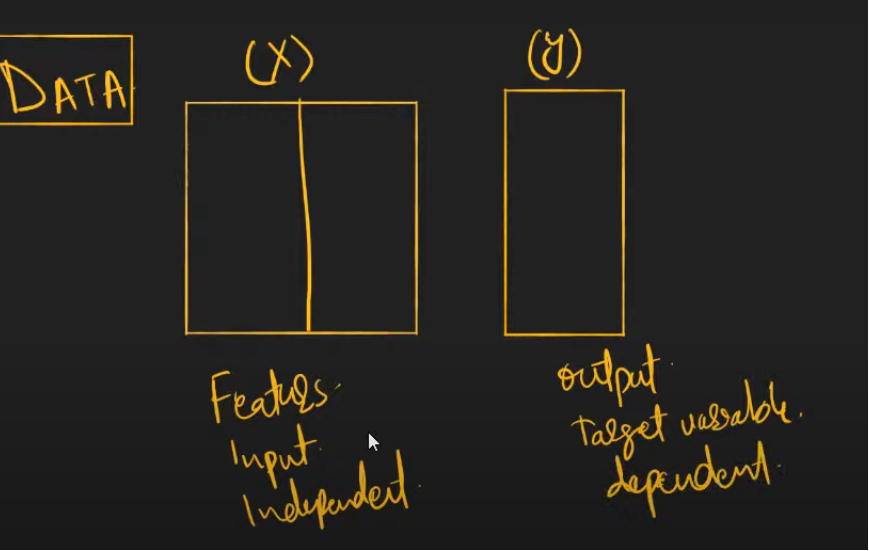 DATA
(X)
(y)
Features.
Input.
Independent.
output.
Target variable.
dependent.